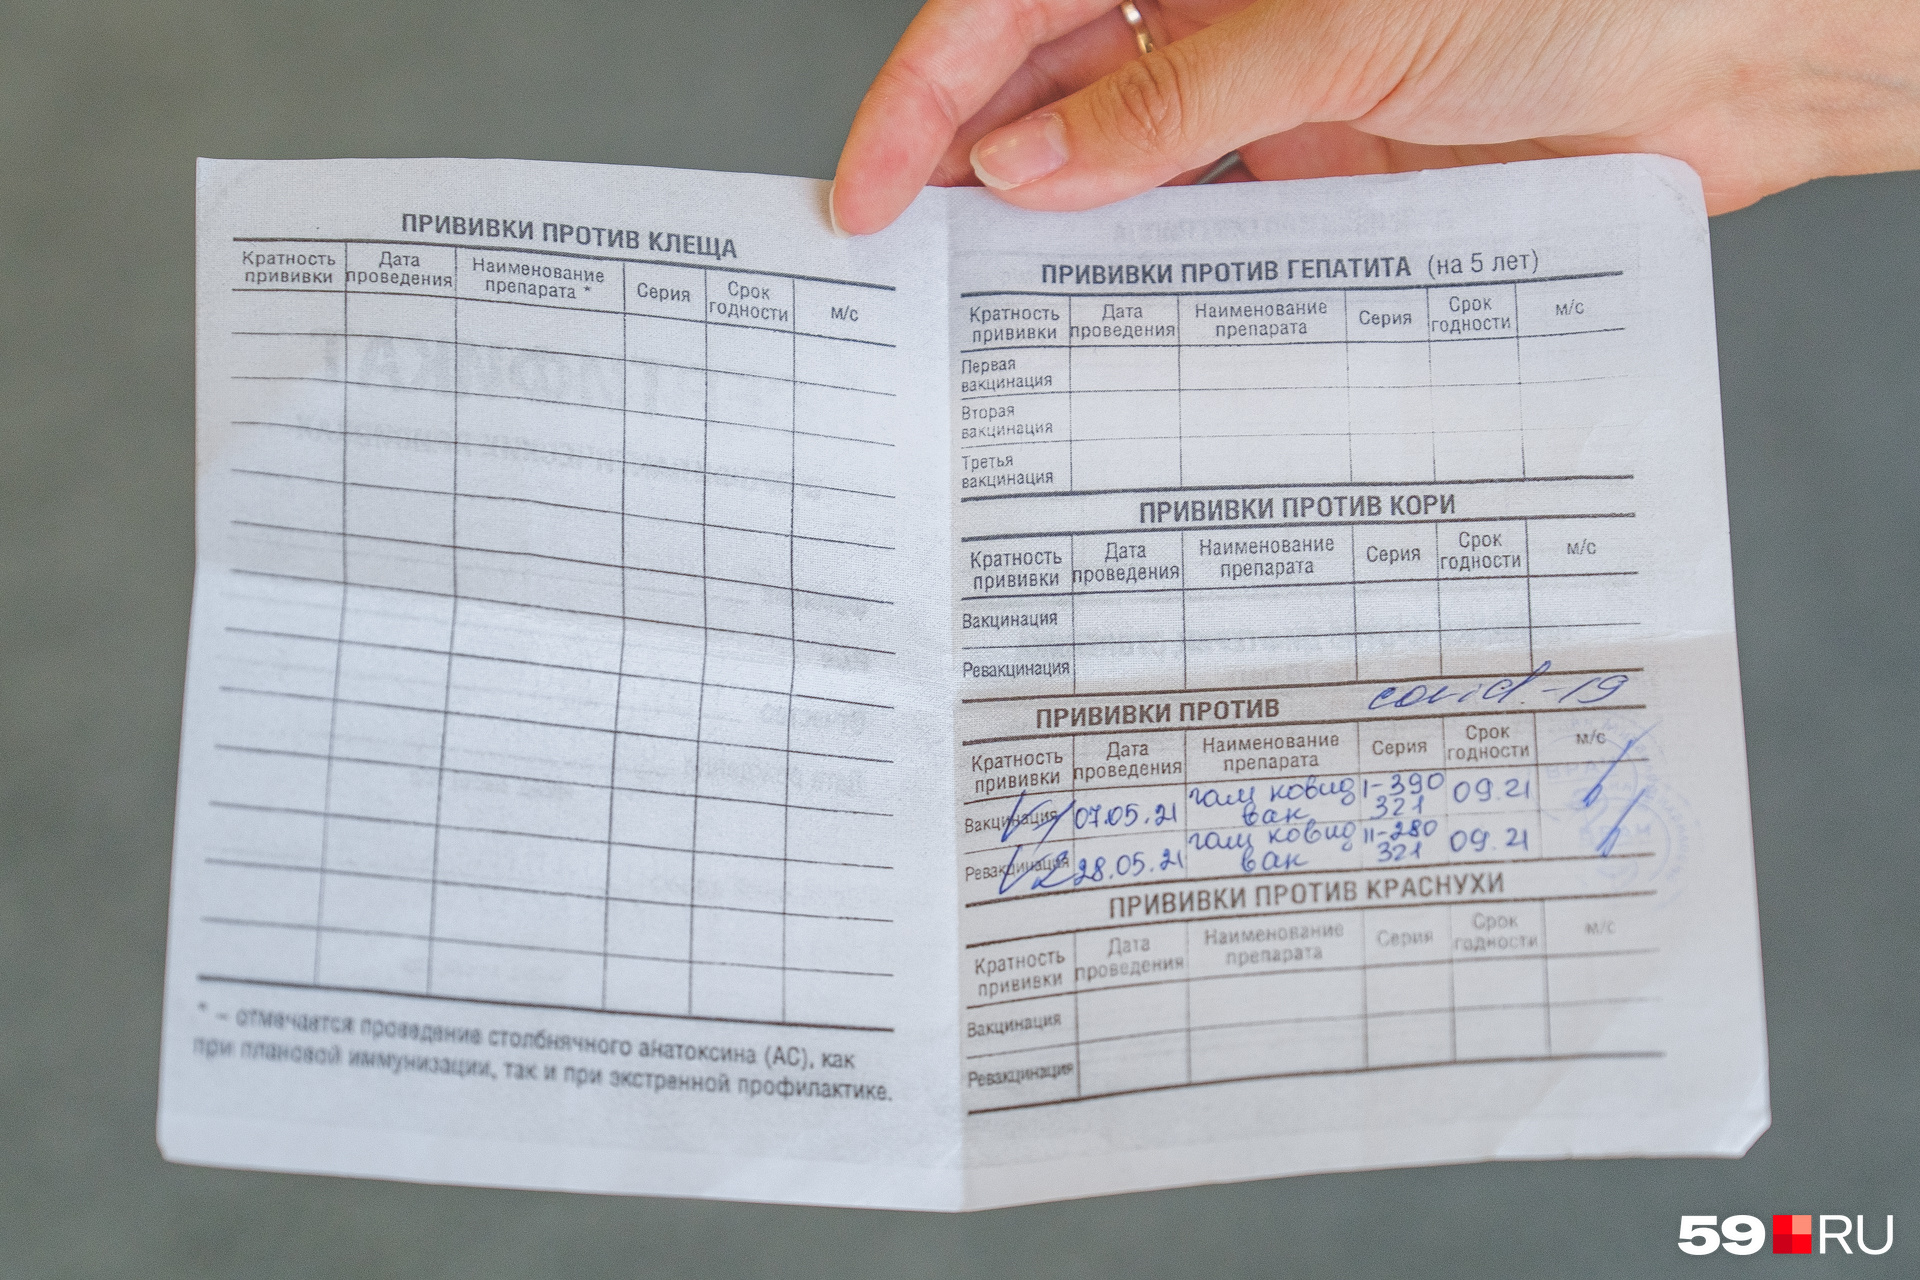 ПРИВИВКИ ПРОТИВ КЛЕЩА
Кратность прививки Дата проведения Наименование препарата * Серия Срок годности м/с
* – отмечается проведение столбнячного анатоксина (АС), как
при плановой иммунизации, так и при экстренной профилактике.
ПРИВИВКИ ПРОТИВ ГЕПАТИТА (на 5 лет)
Кратность прививки Дата проведения Наименование препарата Серия Срок годности м/с
Первая
вакцинация
Вторая
вакцинация
Третья
вакцинация
ПРИВИВКИ ПРОТИВ КОРИ
Кратность прививки Дата проведения Наименование препарата Серия Срок годности м/с
Вакцинация
Ревакцинация
ПРИВИВКИ ПРОТИВ covid-19
Кратность прививки Дата проведения Наименование препарата Серия Срок годности м/с
Вакцинация V1 07.05.21 гам ковид вак I-390 321 09.21
Ревакцинация V2 28.05.21 гам ковид вак II-280 321 09.21
ПРИВИВКИ ПРОТИВ КРАСНУХИ
Кратность прививки Дата проведения Наименование препарата Серия Срок годности м/с
Вакцинация
Ревакцинация
59 RU